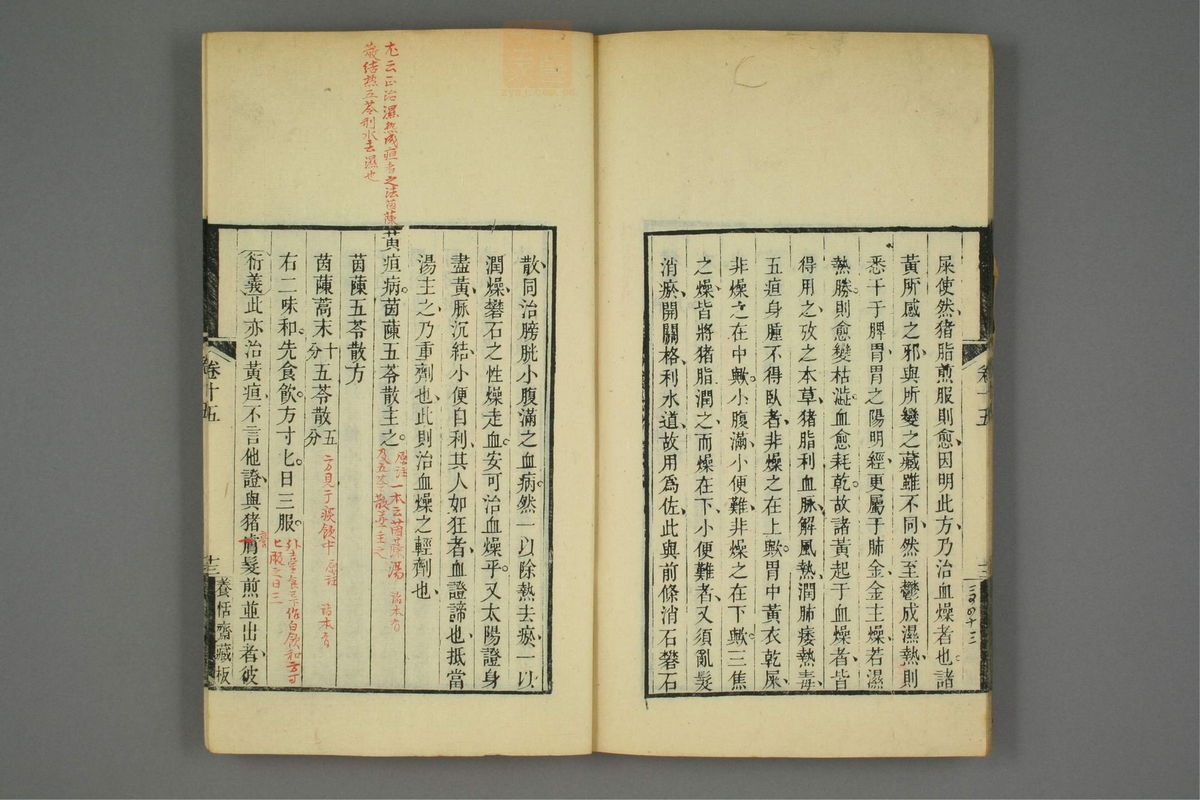 屎使然猪脂煎服則愈因明此方乃治血燥者也諸
黃所感之邪與所變之藏雖不同然至鬱成濕熱則
悉干于脾胃胃之陽明經更屬于肺金金主燥若濕
熱勝則愈變枯澁血愈耗乾故諸黃起于血燥者皆
得用之攷之本草猪脂利血脉解風熱潤肺痿熱毒
五疸身腫不得臥者非燥之在上歟胃中黃衣乾屎
非燥之在中歟小腹滿小便難非燥之在下歟三焦
之燥皆將猪脂潤之而燥在下小便難者又須亂髮
消瘀開關格利水道故用爲佐此與前條消石礬石
卷十五
散同治膀胱小腹滿之血病然一以除熱去瘀一以
潤燥礬石之性燥走血安可治血燥乎又太陽證身
盡黃脉沉結小便自利其人如狂者血證諦也抵當
湯主之乃重劑也此則治血燥之輕劑也
尤云正治濕熱成疸者之法茵蔯
散結熱五苓利水去濕也
黃疸病茵蔯五苓散主之
原注一本云茵蔯湯 諸本有
及五苓散並主之
茵蔯五苓散方
茵蔯蒿末十分 五苓散五分
方見于痰飲中 原注 諸本有
右二味和先食飲方寸匕日三服
外臺食下作白飲和方寸
匕服之日三
衍義此亦治黃疸不言他證與猪膏髮煎並出者彼
卷十五
十三
養恬齋藏板